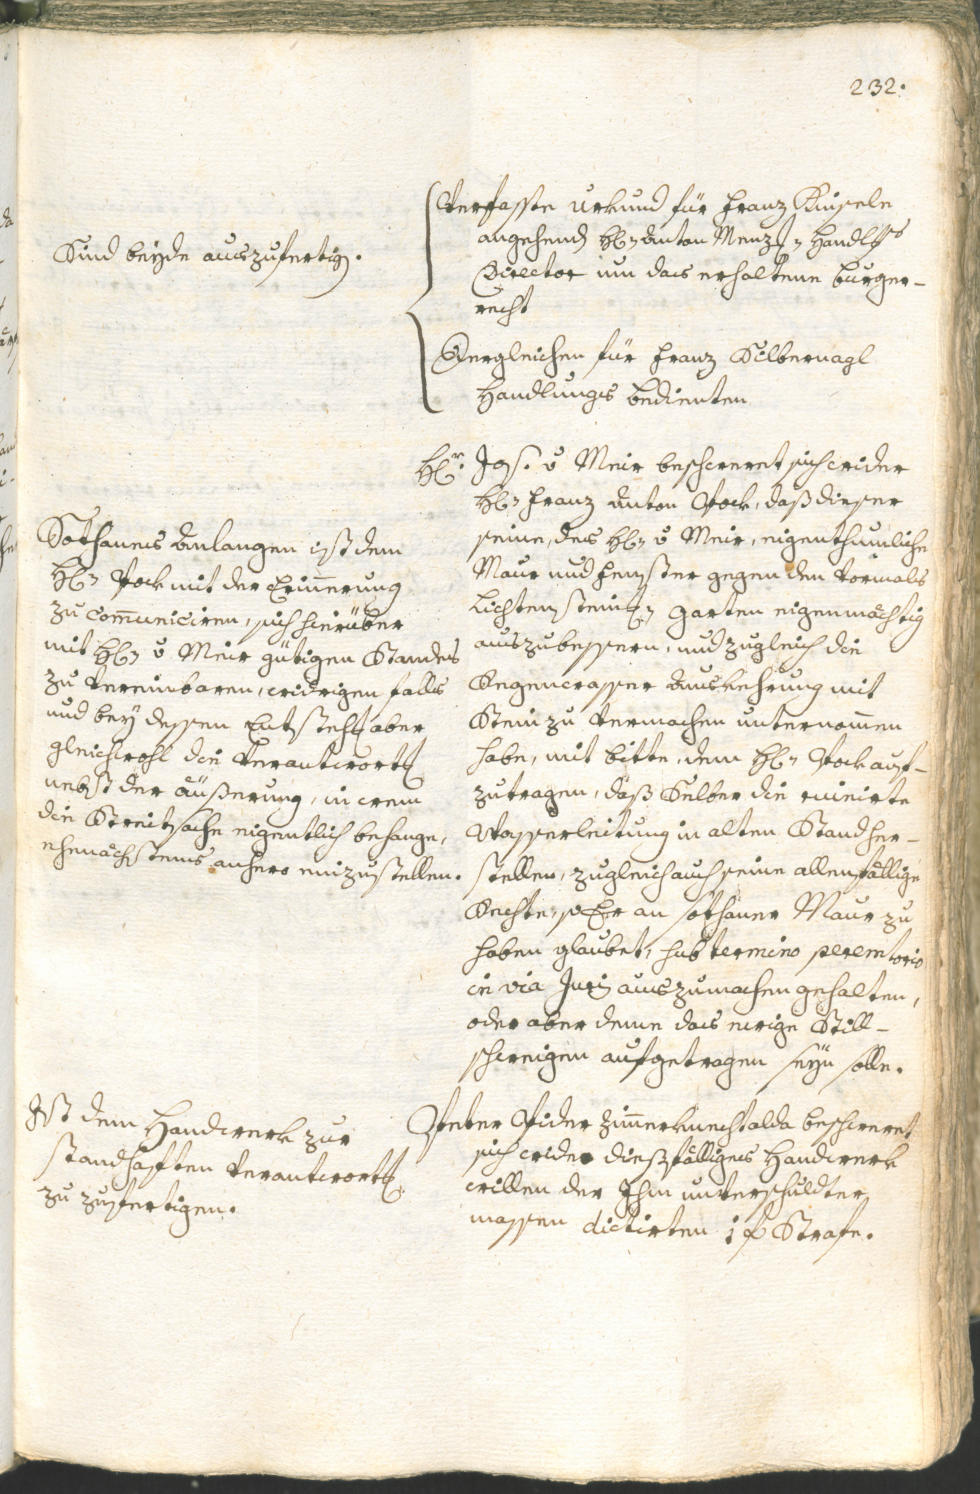 232.
Sind beÿde auszufertig.
Verfasste Urkund für Franz Kinsele
angehend H: Anton Menz: Handl:s
Director um das erhaltene burger-
recht
Dergleichen für Franz Silbernagl
Handlungs bedienten
Hr: Jos. v Meir beschweret sich wider
H: Franz Anton Pock, daß dieser
seine, des H: v Meir, eigenthumliche
Maur und fenster gegen den vormals
Lichtensteint: garten eigenmächtig
auszubessern, und zugleich die
Regenwasser auskehrung mit
Stein zu vermachen unternom̄en
habe, mit bitte, dem H: Pock auf-
zutragen, daß selber die ruinirte
Wasserleitung in alten Stand her-
stellen, zugleich auch seine allenfällige
Rechte, so Er an sothaner Maur zu
haben glaubet, sub termino peremtorio
in via Juris auszumachen gehalten,
oder aber deme das ewige Still-
schweigen aufgetragen seÿn solle.
Sothanes Anlangen ist dem
H: Pock mit der Erin̄erung
zu com̄uniciren, sich hierüber
mit H: v Meir gütigen Standes
zu vereinbaren, widrigen falls
und beÿ dessen Entstehung aber
gleichwohl die Verantwortt:
nebst der äußerung, in wem
die Streitsache eigentlich behange,
ehenächstens anhero einzustellen.
Peter Pider Zim̄erknecht alda beschweret
sich wider dießfälliges Handwerk
willen der Ihm unverschuldter
massen dictirten 1 f Strafe.
Ist dem Handwerk zur
standhaften Verantwortt:
zu zufertigen.